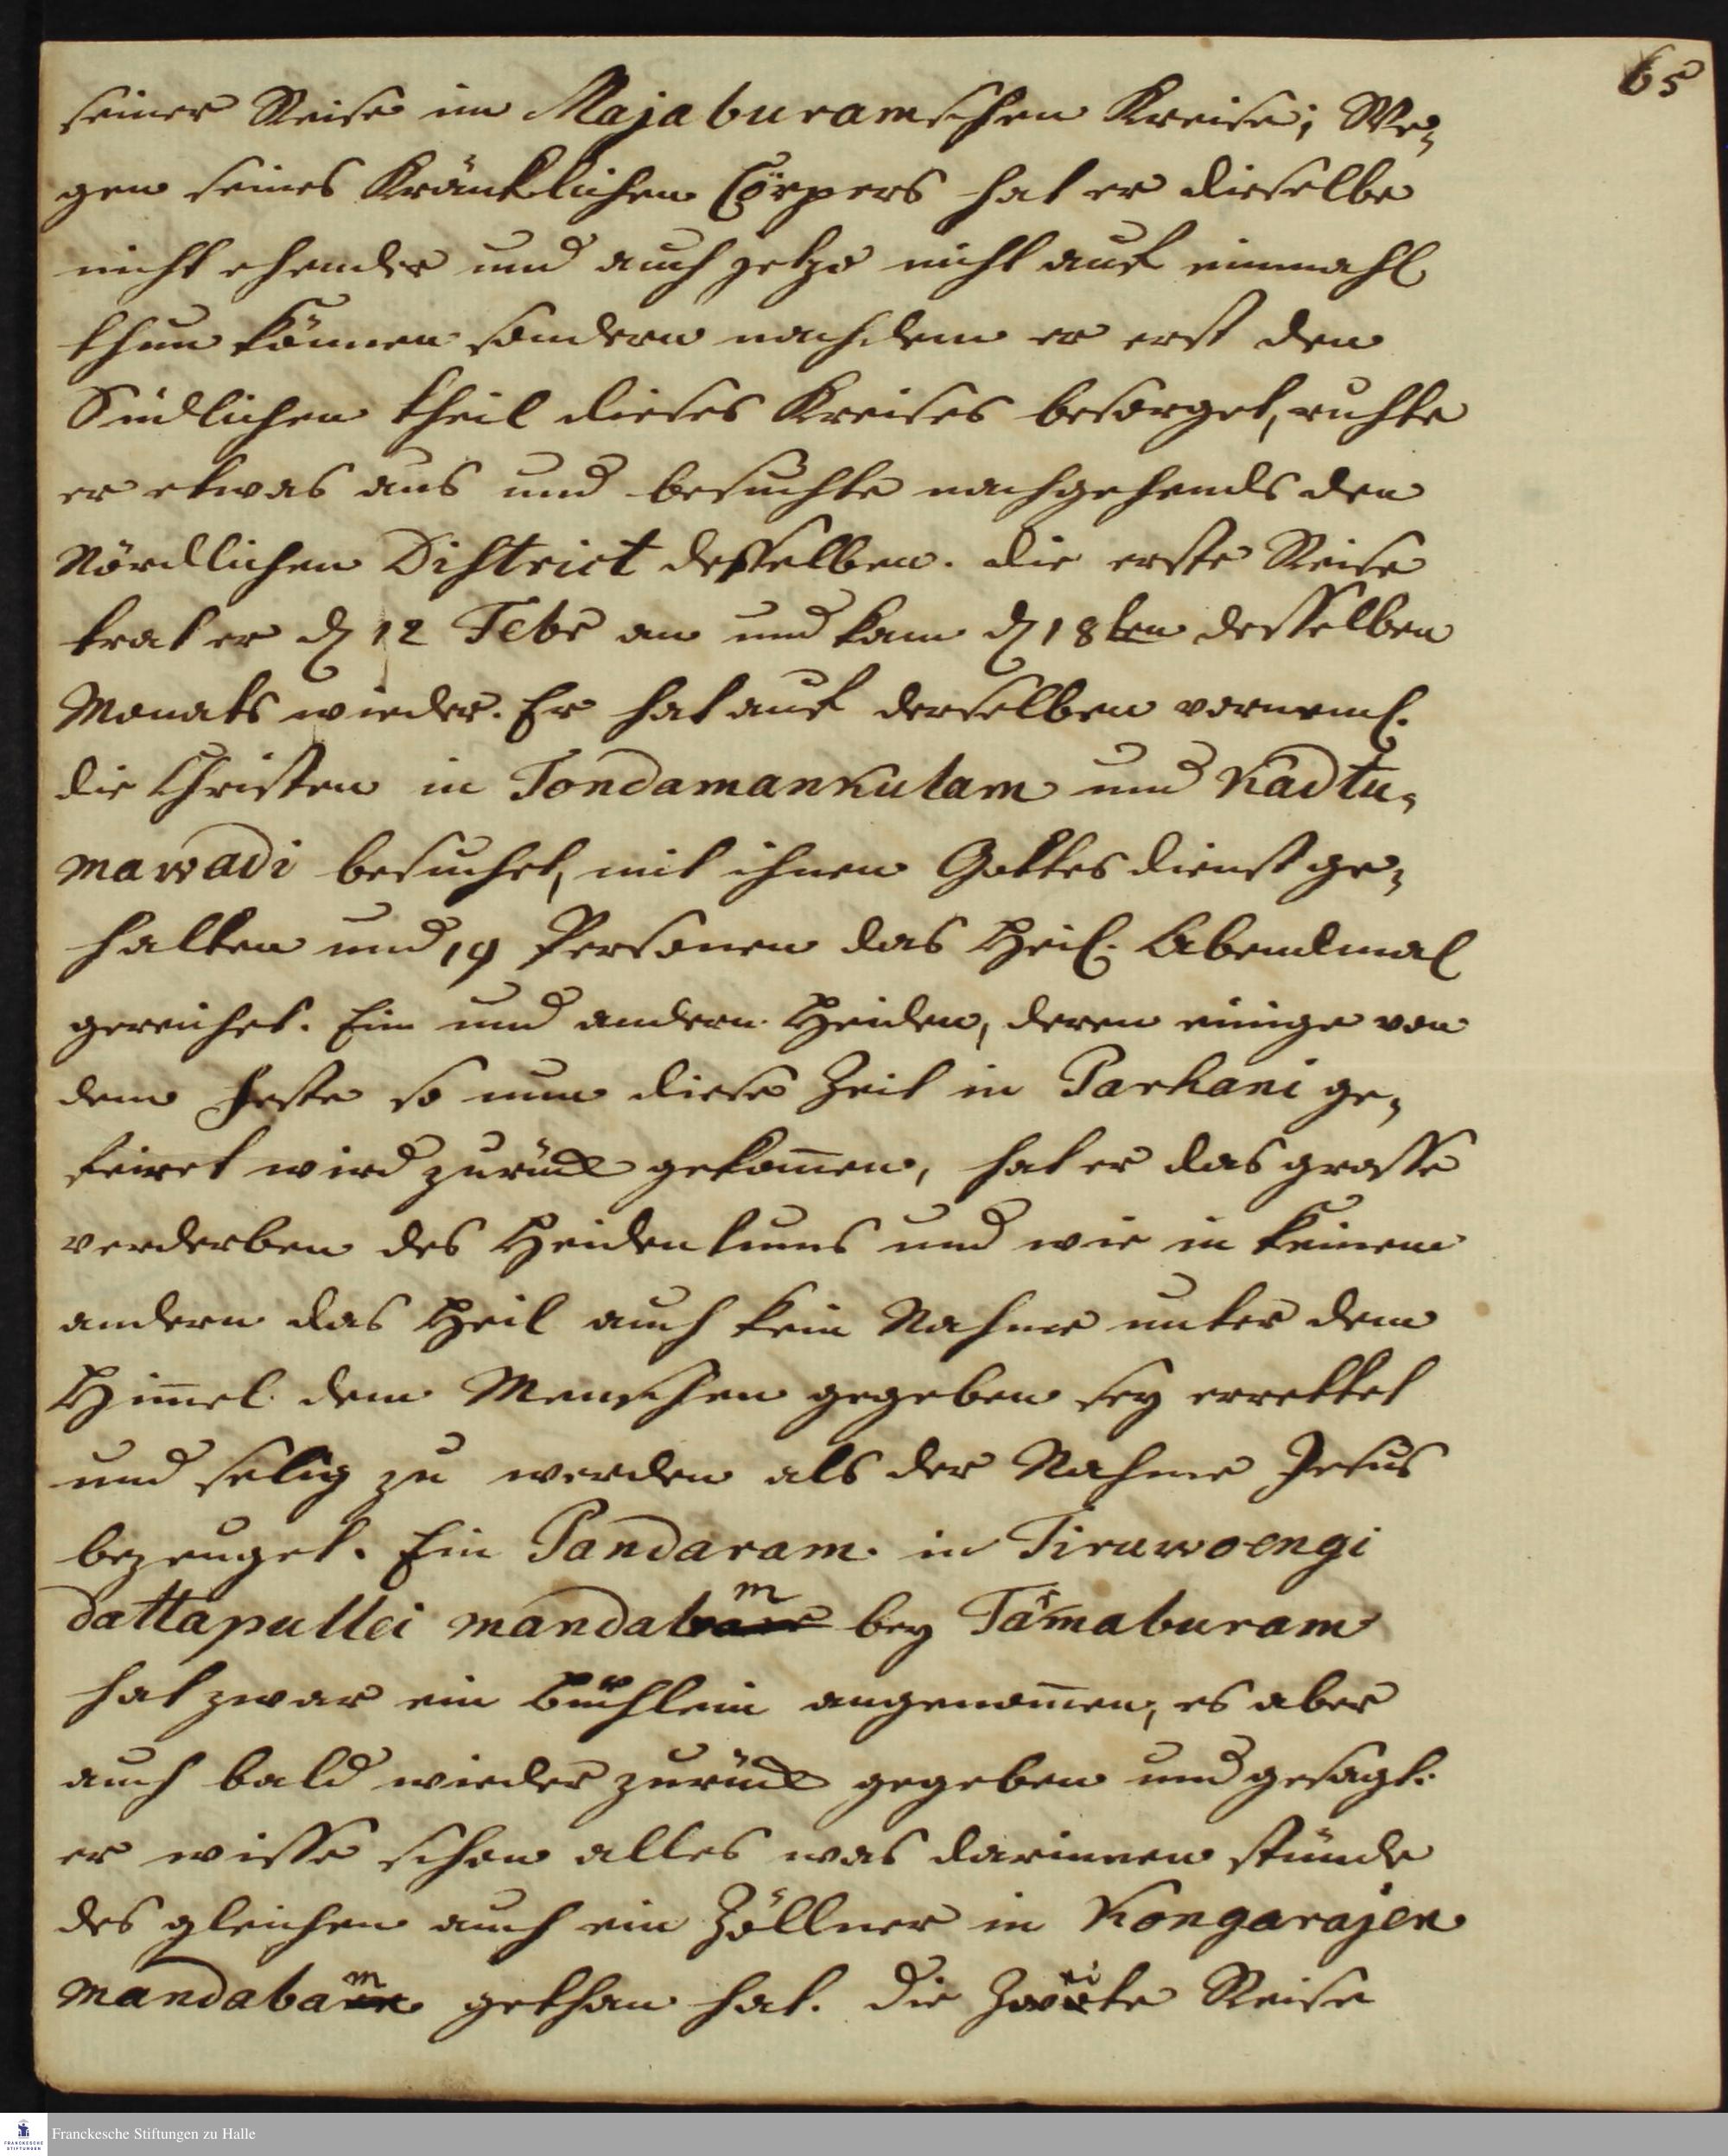 65
seiner Reise im Majaburamschen Kreise; We-
gen seines Kränklichen Cörpers hat er dieselbe
nicht ehender und auch jetzo nicht auf einmahl
thun können sondern nachdem er erst den
Südlichen theil dieses Kreises besorget, ruhte
er etwas aus und besuchte nachgehends den
Nördlichen District desselben. die erste Reise
trat er d 12 Febr an und kam d 18ten desselben
Monats wieder. Er hat auf derselben vorneml.
die Christen in Tondamankulam und Kadtu-
mawadi besuchet, mit ihnen Gottesdienst ge-
halten und 19 Personen das Heil. Abendmal
gereichet. Ein und andern Heiden, deren einige von
dem Feste so um diese Zeit in Parhani ge-
feiret wird zurück gekom̅en, hat er das grosse
verderben des Heidentums und wie in keinem
andern das Heil auch kein Nahme unter dem
Him̅el dem Menschen gegeben sey errettet
und selig zu werden als der Nahme Jesus
bezeuget. Ein Pandaram in Tiruwoengi
dattapullei mandabam bey Tarmaburam
hat zwar ein Büchlein angenom̅en, es aber
auch bald wieder zurück gegeben und gesagt:
er wisse schon alles was darinnen stünde
des gleichen auch ein Zöllner in Kongarajen
mandabam gethan hat. Die Zweite Reise
FRANCKESCHE
STIFTUNGEN
Franckesche Stiftungen zu Halle